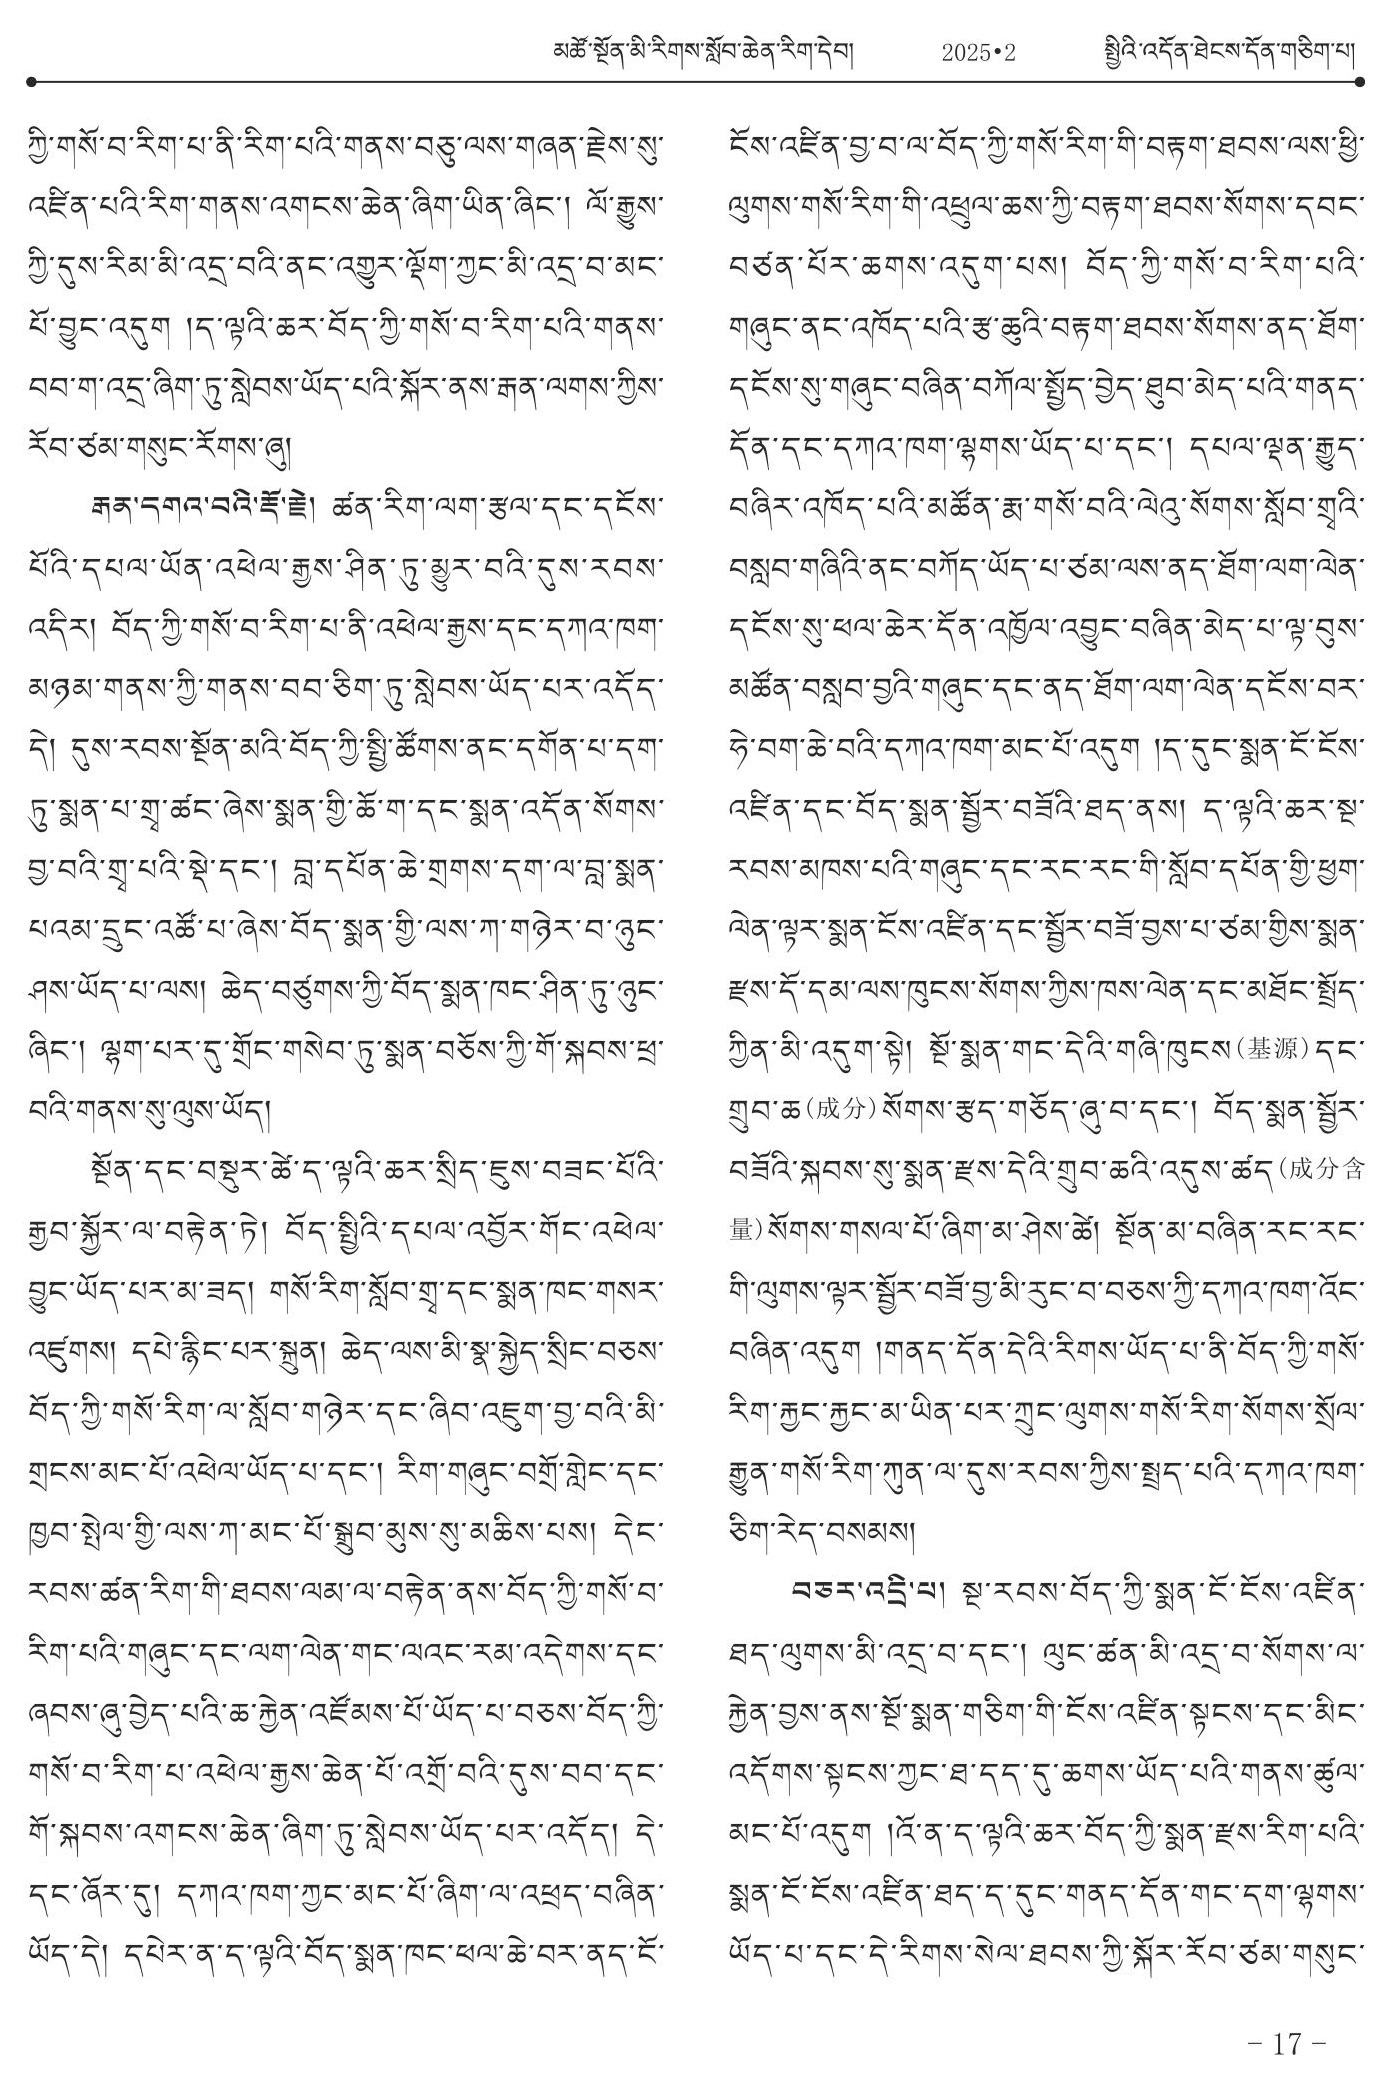 མཚོ་སྔོན་མི་རིགས་སློབ་ཆེན་རིག་དེབ། 2025•2 སྤྱིའི་འདོན་ཐེངས་དོན་གཅིག་པ།
ཀྱི་གསོ་བ་རིག་པ་ནི་རིག་པའི་གནས་བཅུ་ལས་གཞན་རྗེས་སུ་
འཛིན་པའི་རིག་གནས་འགངས་ཆེན་ཞིག་ཡིན་ཞིང་། ལོ་རྒྱུས་
ཀྱི་དུས་རིམ་མི་འདྲ་བའི་ནང་འགྱུར་ལྡོག་ཀྱང་མི་འདྲ་བ་མང་
པོ་བྱུང་འདུག །ད་ལྟའི་ཆར་བོད་ཀྱི་གསོ་བ་རིག་པའི་གནས་
བབ་ག་འདྲ་ཞིག་ཏུ་སླེབས་ཡོད་པའི་སྐོར་ནས་རྒན་ལགས་ཀྱིས་
རོབ་ཙམ་གསུང་རོགས་ཞུ།
རྒན་དགའ་བའི་རྡོ་རྗེ། ཚན་རིག་ལག་རྩལ་དང་དངོས་
པོའི་དཔལ་ཡོན་འཕེལ་རྒྱས་ཤིན་ཏུ་མྱུར་བའི་དུས་རབས་
འདིར། བོད་ཀྱི་གསོ་བ་རིག་པ་ནི་འཕེལ་རྒྱས་དང་དཀའ་ཁག་
མཉམ་གནས་ཀྱི་གནས་བབ་ཅིག་ཏུ་སླེབས་ཡོད་པར་འདོད་
དེ། དུས་རབས་སྔོན་མའི་བོད་ཀྱི་སྤྱི་ཚོགས་ནང་དགོན་པ་དག་
ཏུ་སྨན་པ་གྲྭ་ཚང་ཞེས་སྨན་གྱི་ཆོ་ག་དང་སྨན་འདོན་སོགས་
བྱ་བའི་གྲྭ་པའི་སྡེ་དང་། བླ་དཔོན་ཆེ་གྲགས་དག་ལ་བླ་སྨན་
པའམ་དྲུང་འཚོ་པ་ཞེས་བོད་སྨན་གྱི་ལས་ཀ་གཉེར་བ་ཉུང་
ཤས་ཡོད་པ་ལས། ཆེད་བཙུགས་ཀྱི་བོད་སྨན་ཁང་ཤིན་ཏུ་ཉུང་
ཞིང་། ལྷག་པར་དུ་གྲོང་གསེབ་ཏུ་སྨན་བཅོས་ཀྱི་གོ་སྐབས་ཕྲ་
བའི་གནས་སུ་ལུས་ཡོད།
སྔོན་དང་བསྡུར་ཚེ་ད་ལྟའི་ཆར་སྲིད་ཇུས་བཟང་པོའི་
རྒྱབ་སྐྱོར་ལ་བརྟེན་ཏེ། བོད་སྤྱིའི་དཔལ་འབྱོར་གོང་འཕེལ་
བྱུང་ཡོད་པར་མ་ཟད། གསོ་རིག་སློབ་གྲྭ་དང་སྨན་ཁང་གསར་
འཛུགས། དཔེ་རྙིང་པར་སྐྲུན། ཆེད་ལས་མི་སྣ་སྐྱེད་སྲིང་བཅས་
བོད་ཀྱི་གསོ་རིག་ལ་སློབ་གཉེར་དང་ཞིབ་འཇུག་བྱ་བའི་མི་
གྲངས་མང་པོ་འཕེལ་ཡོད་པ་དང་། རིག་གཞུང་བགྲོ་གླེང་དང་
ཁྱབ་སྤེལ་གྱི་ལས་ཀ་མང་པོ་སྒྲུབ་མུས་སུ་མཆིས་པས། དེང་
རབས་ཚན་རིག་གི་ཐབས་ལམ་ལ་བརྟེན་ནས་བོད་ཀྱི་གསོ་བ་
རིག་པའི་གཞུང་དང་ལག་ལེན་གང་ལའང་རམ་འདེགས་དང་
ཞབས་ཞུ་བྱེད་པའི་ཆ་རྐྱེན་འཛོམས་པོ་ཡོད་པ་བཅས་བོད་ཀྱི་
གསོ་བ་རིག་པ་འཕེལ་རྒྱས་ཆེན་པོ་འགྲོ་བའི་དུས་བབ་དང་
གོ་སྐབས་འགངས་ཆེན་ཞིག་ཏུ་སླེབས་ཡོད་པར་འདོད། དེ་
དང་ཞོར་དུ། དཀའ་ཁག་ཀྱང་མང་པོ་ཞིག་ལ་འཕྲད་བཞིན་
ཡོད་དེ། དཔེར་ན་ད་ལྟའི་བོད་སྨན་ཁང་ཕལ་ཆེ་བར་ནད་ངོ་
ངོས་འཛིན་བྱ་བ་ལ་བོད་ཀྱི་གསོ་རིག་གི་བརྟག་ཐབས་ལས་ཕྱི་
ལུགས་གསོ་རིག་གི་འཕྲུལ་ཆས་ཀྱི་བརྟག་ཐབས་སོགས་དབང་
བཙན་པོར་ཆགས་འདུག་པས། བོད་ཀྱི་གསོ་བ་རིག་པའི་
གཞུང་ནང་འཁོད་པའི་རྩ་ཆུའི་བརྟག་ཐབས་སོགས་ནད་ཐོག་
དངོས་སུ་གཞུང་བཞིན་བཀོལ་སྤྱོད་བྱེད་ཐུབ་མེད་པའི་གནད་
དོན་དང་དཀའ་ཁག་ལྷགས་ཡོད་པ་དང་། དཔལ་ལྡན་རྒྱུད་
བཞིར་འཁོད་པའི་མཚོན་རྨ་གསོ་བའི་ལེའུ་སོགས་སློབ་གྲྭའི་
བསླབ་གཞིའི་ནང་བཀོད་ཡོད་པ་ཙམ་ལས་ནད་ཐོག་ལག་ལེན་
དངོས་སུ་ཕལ་ཆེར་དོན་འཁྱོལ་འབྱུང་བཞིན་མེད་པ་ལྟ་བུས་
མཚོན་བསླབ་བྱའི་གཞུང་དང་ནད་ཐོག་ལག་ལེན་དངོས་བར་
ཧེ་བག་ཆེ་བའི་དཀའ་ཁག་མང་པོ་འདུག །ད་དུང་སྨན་ངོ་ངོས་
འཛིན་དང་བོད་སྨན་སྦྱོར་བཟོའི་ཐད་ནས། ད་ལྟའི་ཆར་སྔ་
རབས་མཁས་པའི་གཞུང་དང་རང་རང་གི་སློབ་དཔོན་གྱི་ཕྱག་
ལེན་ལྟར་སྨན་ངོས་འཛིན་དང་སྦྱོར་བཟོ་བྱས་པ་ཙམ་གྱིས་སྨན་
རྫས་དོ་དམ་ལས་ཁུངས་སོགས་ཀྱིས་ཁས་ལེན་དང་མཐོང་སྤྲོད་
ཀྱིན་མི་འདུག་སྟེ། སྔོ་སྨན་གང་དེའི་གཞི་ཁུངས(基源)དང་
གྲུབ་ཆ(成分)སོགས་རྩད་གཅོད་ཞུ་བ་དང་། བོད་སྨན་སྦྱོར་
བཟོའི་སྐབས་སུ་སྨན་རྫས་དེའི་གྲུབ་ཆའི་འདུས་ཚད(成分含
量)སོགས་གསལ་པོ་ཞིག་མ་ཤེས་ཚེ། སྔོན་མ་བཞིན་རང་རང་
གི་ལུགས་ལྟར་སྦྱོར་བཟོ་བྱ་མི་རུང་བ་བཅས་ཀྱི་དཀའ་ཁག་འོང་
བཞིན་འདུག །གནད་དོན་དེའི་རིགས་ཡོད་པ་ནི་བོད་ཀྱི་གསོ་
རིག་རྐྱང་རྐྱང་མ་ཡིན་པར་ཀྲུང་ལུགས་གསོ་རིག་སོགས་སྲོལ་
རྒྱུན་གསོ་རིག་ཀུན་ལ་དུས་རབས་ཀྱིས་སྤྲད་པའི་དཀའ་ཁག་
ཅིག་རེད་བསམས།
བཅར་འདྲི་པ། སྔ་རབས་བོད་ཀྱི་སྨན་ངོ་ངོས་འཛིན་
ཐད་ལུགས་མི་འདྲ་བ་དང་། ལུང་ཚན་མི་འདྲ་བ་སོགས་ལ་
རྐྱེན་བྱས་ནས་སྔོ་སྨན་གཅིག་གི་ངོས་འཛིན་སྟངས་དང་མིང་
འདོགས་སྟངས་ཀྱང་ཐ་དད་དུ་ཆགས་ཡོད་པའི་གནས་ཚུལ་
མང་པོ་འདུག །འོ་ན་ད་ལྟའི་ཆར་བོད་ཀྱི་སྨན་རྫས་རིག་པའི་
སྨན་ངོ་ངོས་འཛིན་ཐད་ད་དུང་གནད་དོན་གང་དག་ལྷགས་
ཡོད་པ་དང་དེ་རིགས་སེལ་ཐབས་ཀྱི་སྐོར་རོབ་ཙམ་གསུང་
- 17 -